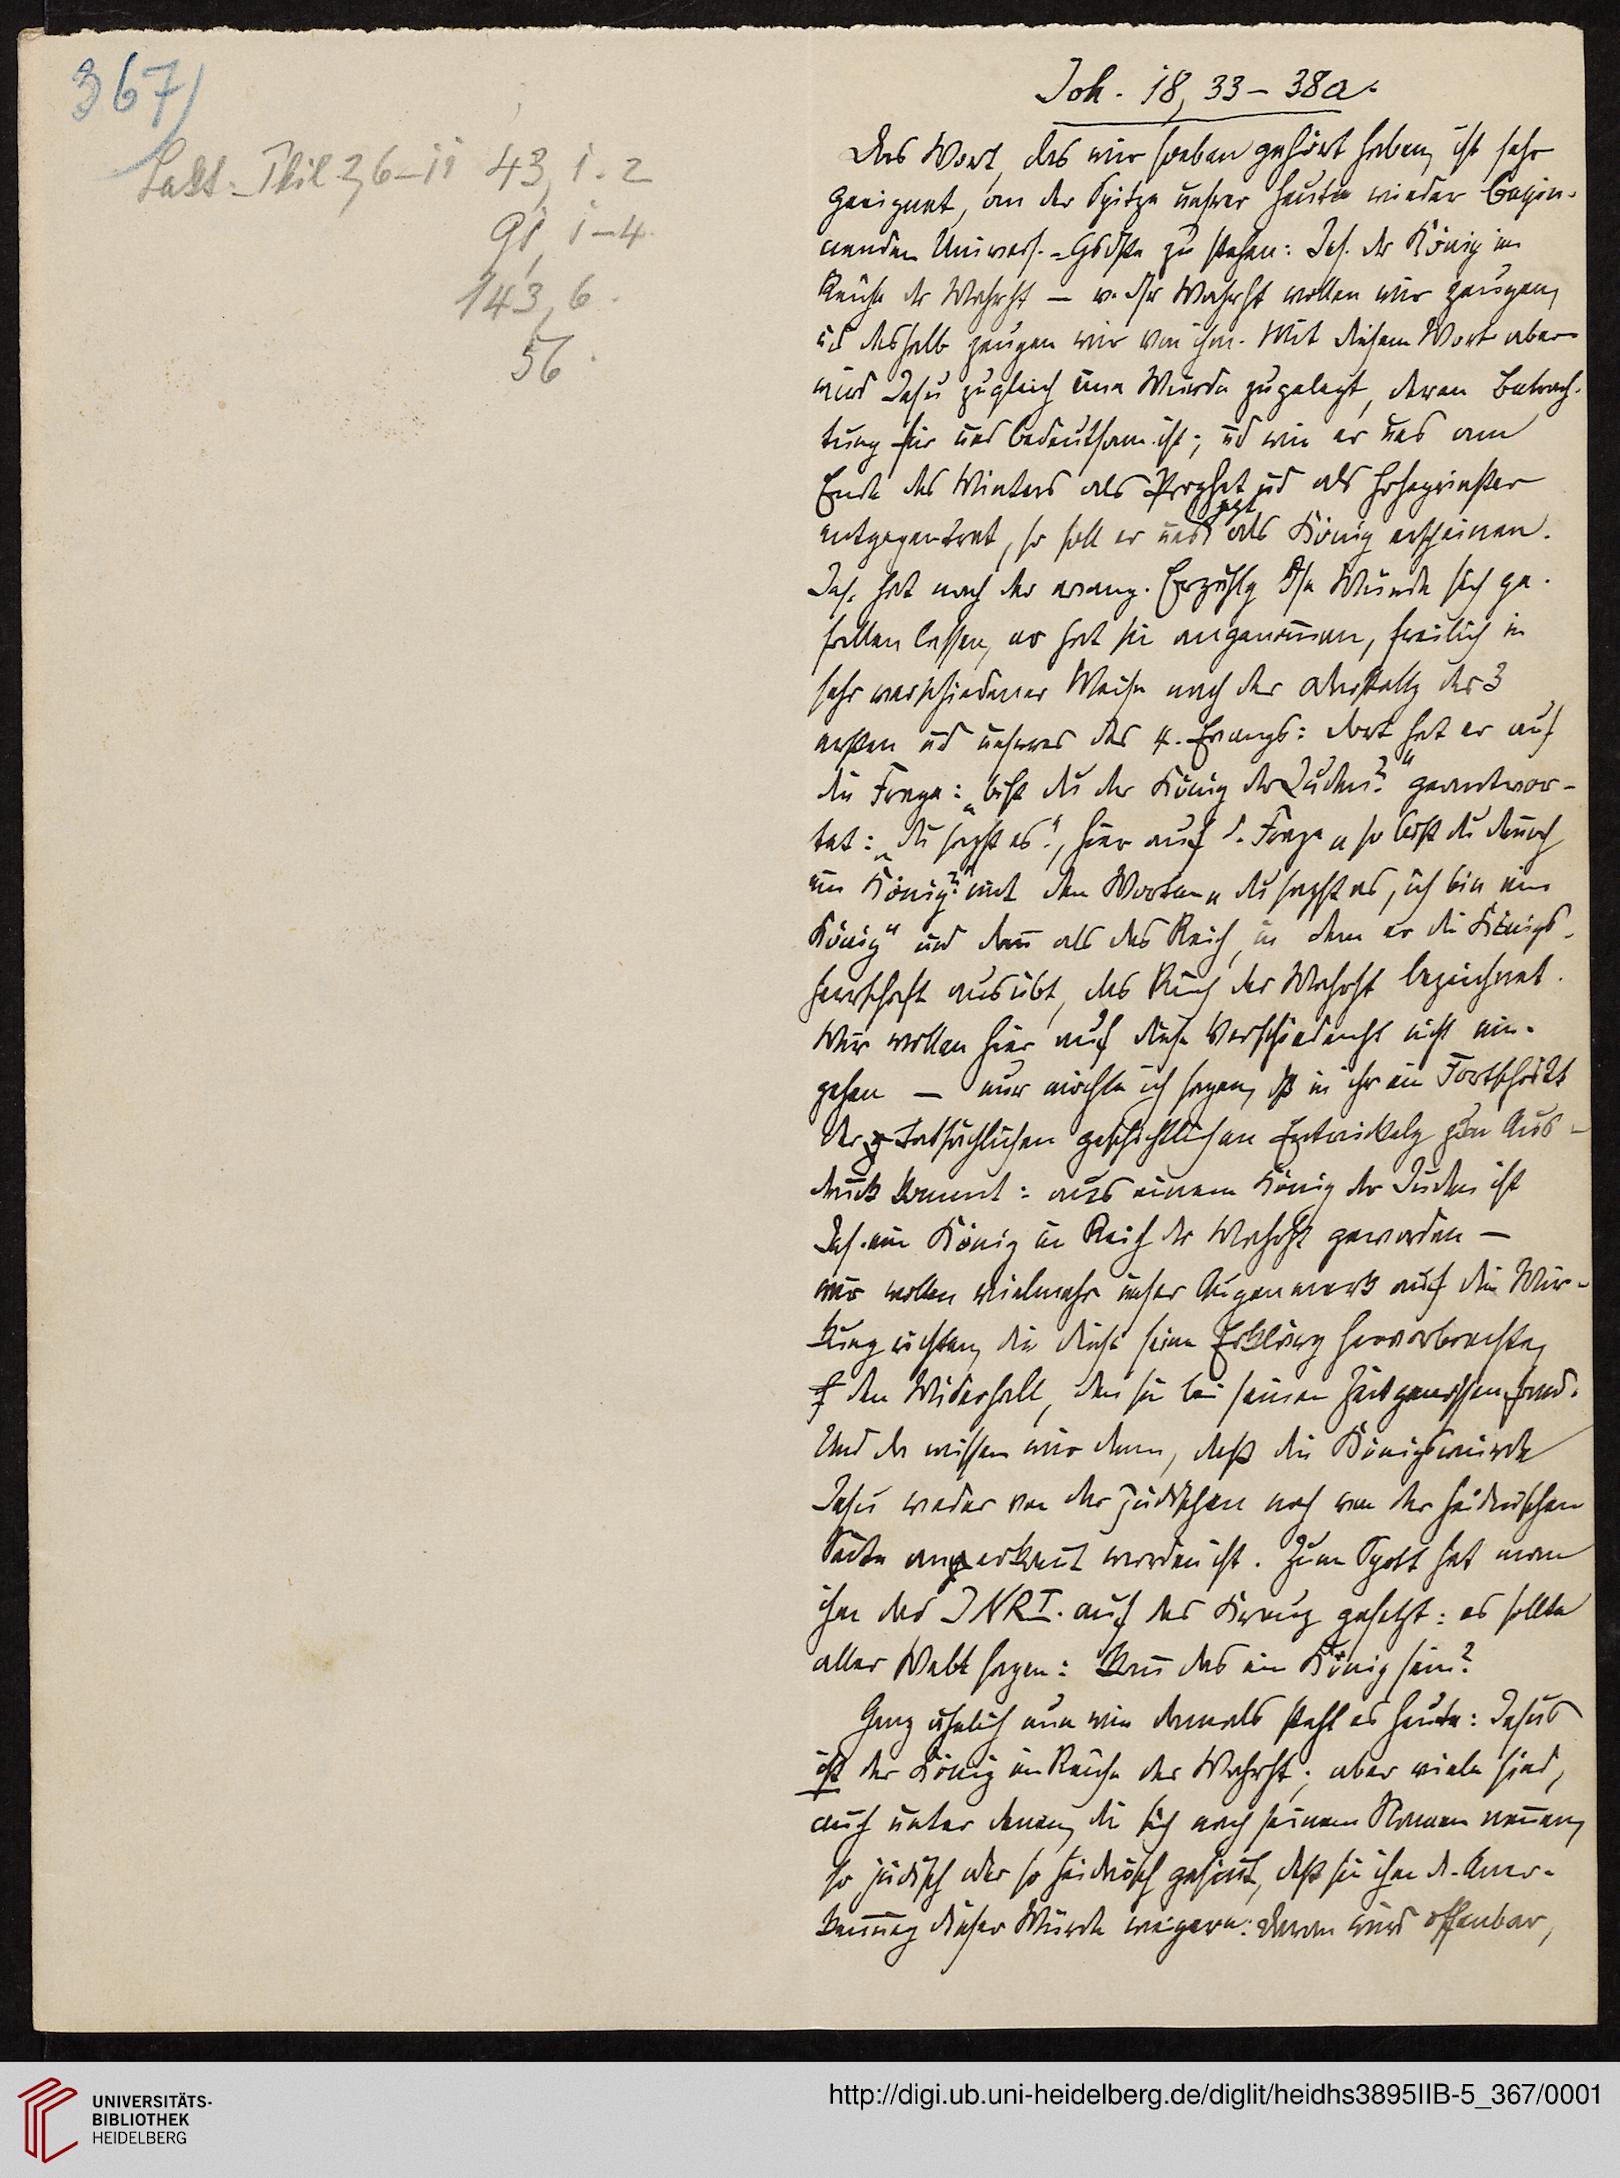 367)
Lekt. Phil 2,6–11 43, 1. 2
91, 1–4.
143, 6.
56.
Joh. 18, 33 – 38a.
Das Wort, das wir soeben gehört haben, ist sehr
geeignet, an der Spitze unsrer heute wieder begin-
nenden Univers.-Gdste zu stehen: Jes. der König im
Reiche der Wahrht — v. dsr Wahrht wollen wir zeugen,
ud deshalb zeugen wir von ihm. Mit diesem Worte aber
wird Jesu zugleich eine Würde zugelegt, deren Betrach-
tung für uns bedeutsam ist; ud wie er uns am
Ende des Winters als Prophet ud als Hohepriester
entgegentrat, so soll er uns jetzt als König erscheinen.
Jes. hat nach der evang. Erzählg dse Würde sich ge-
fallen lassen, er hat sie angenom̄en, freilich in
sehr verschiedener Weise nach der Darstellg der 3
ersten ud unseres des 4. Evangs: dort hat er auf
die Frage: „bist du der König der Juden?“ geantwor-
tet: „du sagst es“, hier auf d. Frage „so bist du den̄och
ein König?“ mit den Worten „du sagst es, ich bin ein
König“ und dan̄ als das Reich, in dem er die Königs-
herrschaft ausübt, das Reich der Wahrht bezeichnet.
Wir wollen hier auf diese Verschiedenht nicht ein-
gehen — nur möchte ich sagen, dß in ihr ein Fortschritt
der tatsächlichen geschichtlichen Entwickelg zum Aus-
druck kommt: aus einem König der Juden ist
Jes. ein König im Reich der Wahrht geworden —
wir wollen vielmehr unser Augenmerk auf die Wir-
kung richten, die diese seine Erklärg hervorbrachte,
f den Widerhall, den sie bei seinen Zeitgenossen fand.
Und da wissen wir denn, daß die Königswürde
Jesu weder von der jüdischen noch von der heidnischen
Seite anerkan̄t worden ist. Zum Spott hat man
ihm das INRI. auf das Kreuz gesetzt: es sollte
aller Welt sagen: Kan̄ das ein König sein?
Ganz ähnlich nun wie damals steht es heute: Jesus
ist der König im Reiche der Wahrht; aber viele sind,
auch unter denen, die sich nach seinem Namen nen̄en,
so jüdisch oder so heidnisch gesin̄t, daß sie ihm d. Aner-
ken̄ung dieser Würde weigern: daran wird offenbar,
UNIVERSITÄTS-
BIBLIOTHEK
HEIDELBERG
http://digi.ub.uni-heidelberg.de/diglit/heidhs3895IIB-5_367/0001